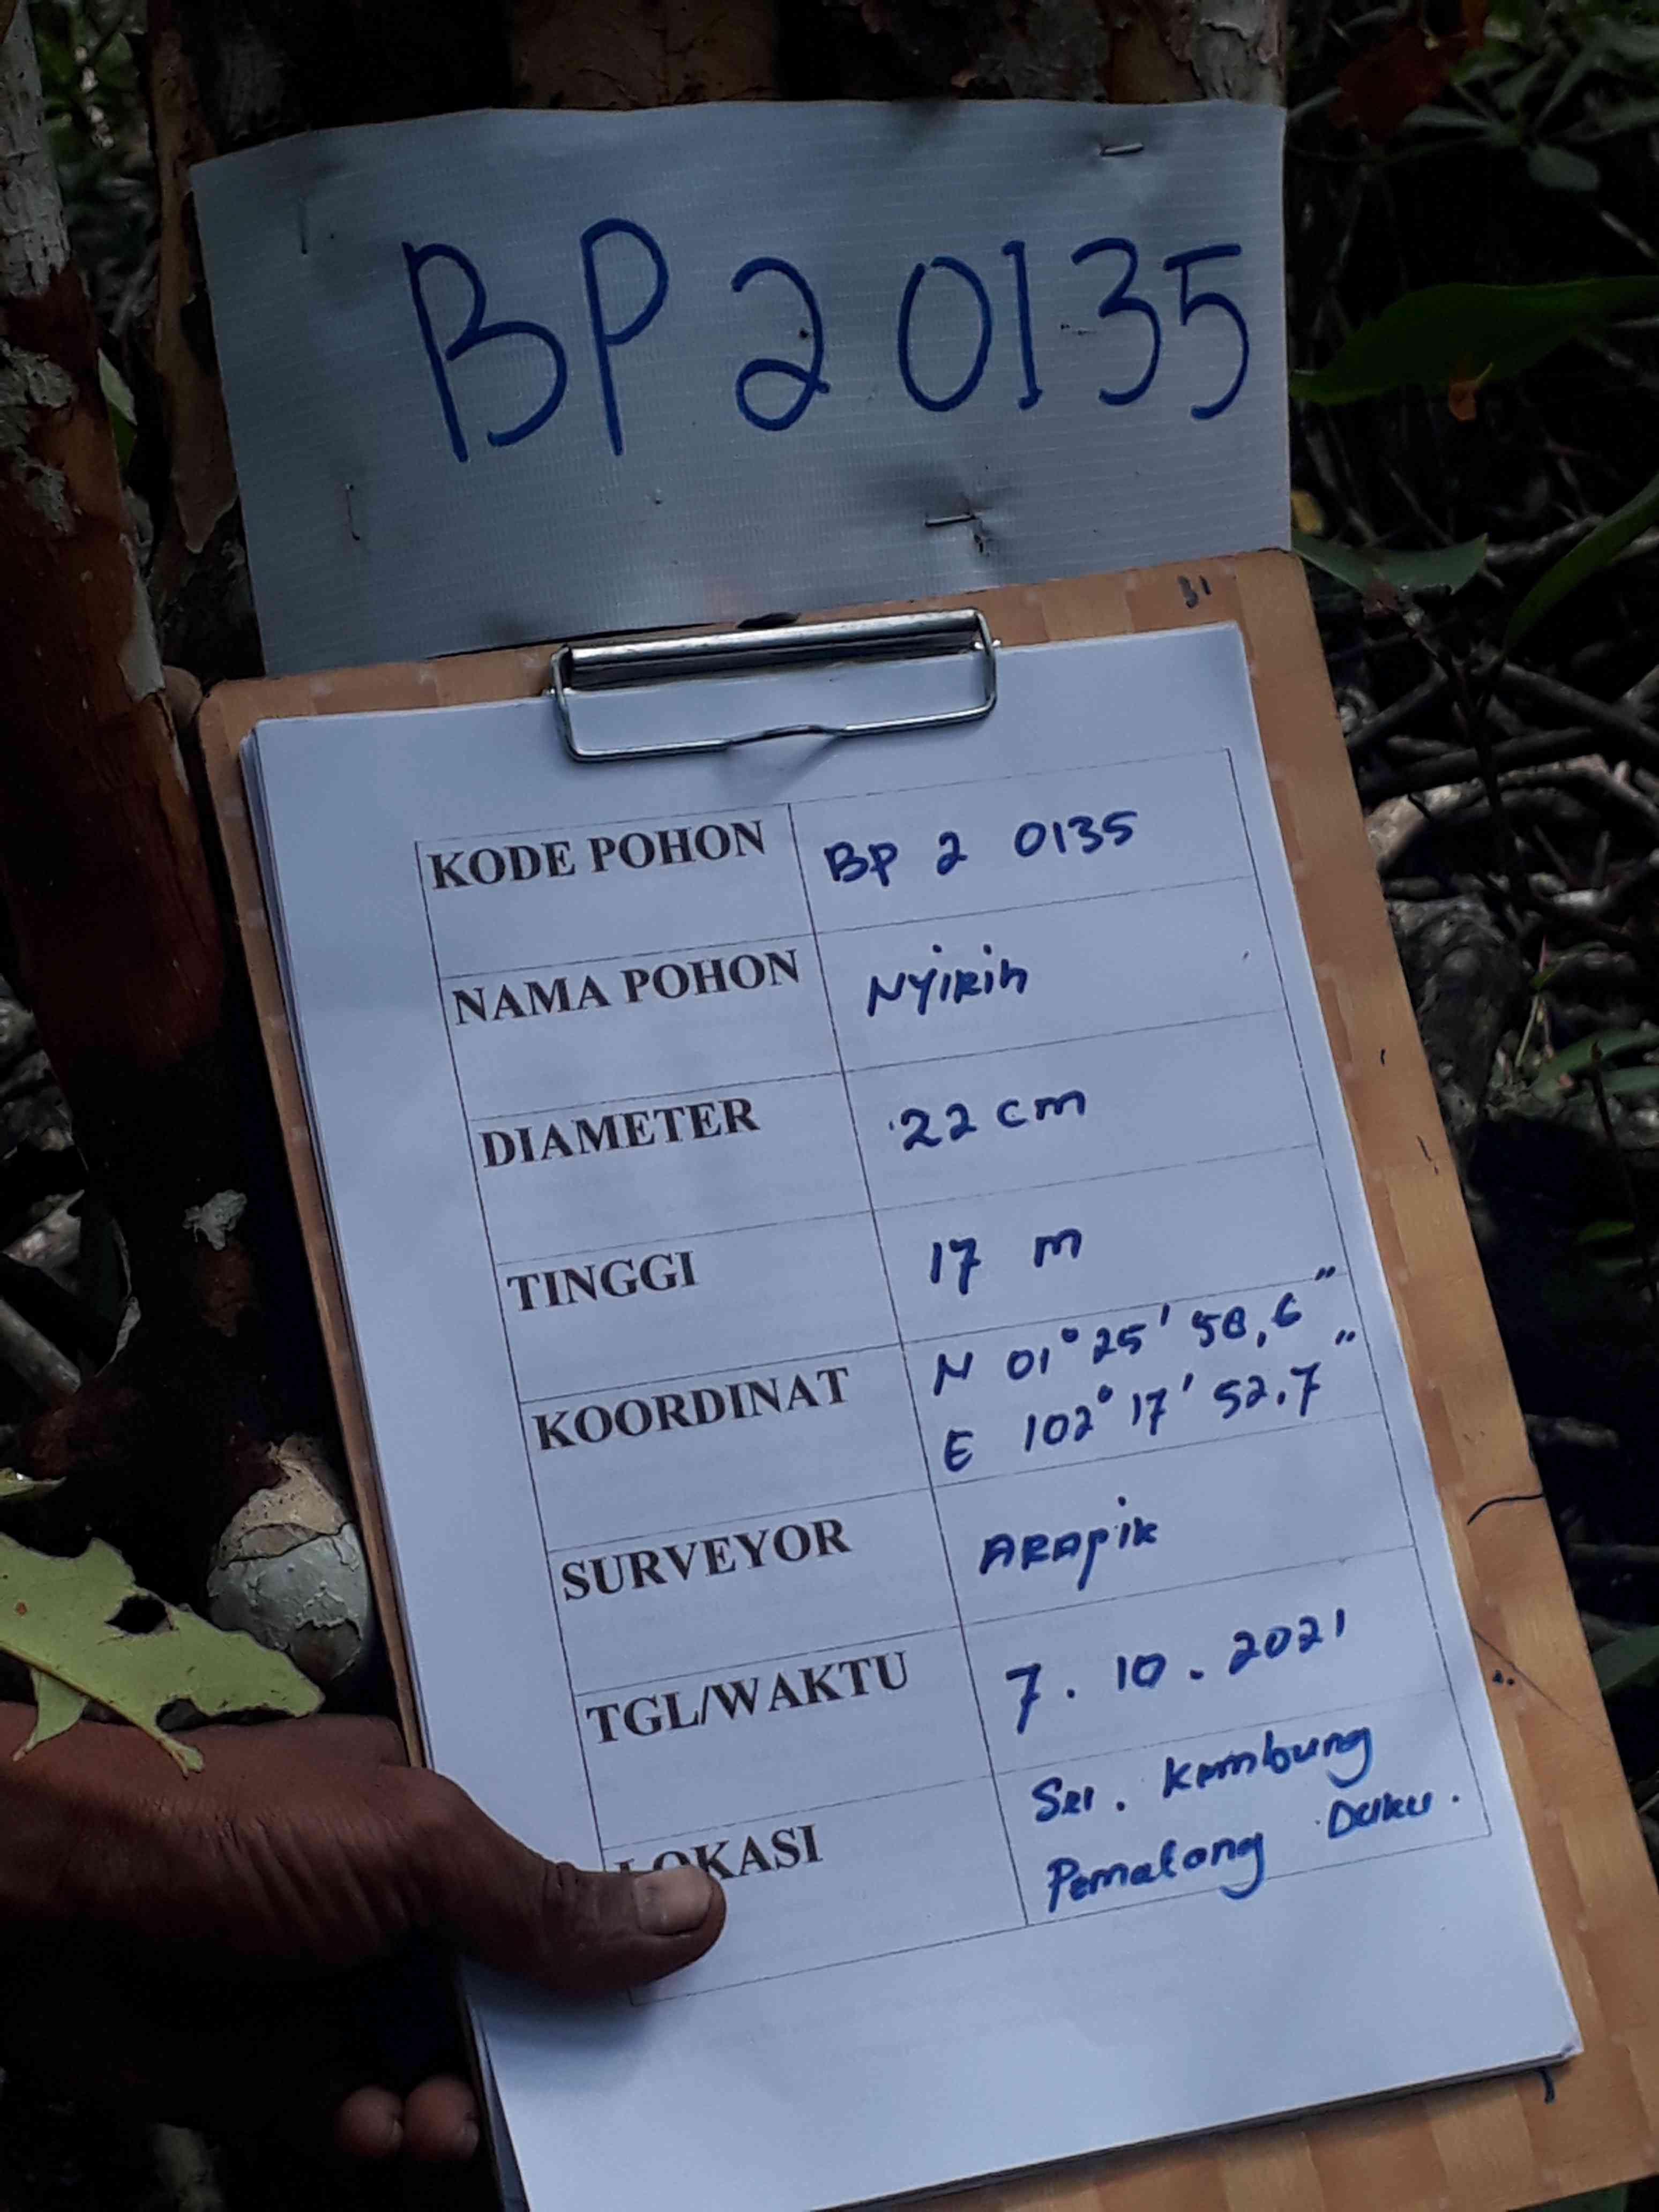 BP 2 0135
KODE POHON BP 2 0135
NAMA POHON NYiRih
DIAMETER 22 cm
TINGGI 17 m
KOORDINAT N 01° 25' 58,6"
E 102° 17' 52,7"
SURVEYOR ARApik
TGL/WAKTU 7. 10. 2021
LOKASI Sei. Kembung
Pematang Duku.